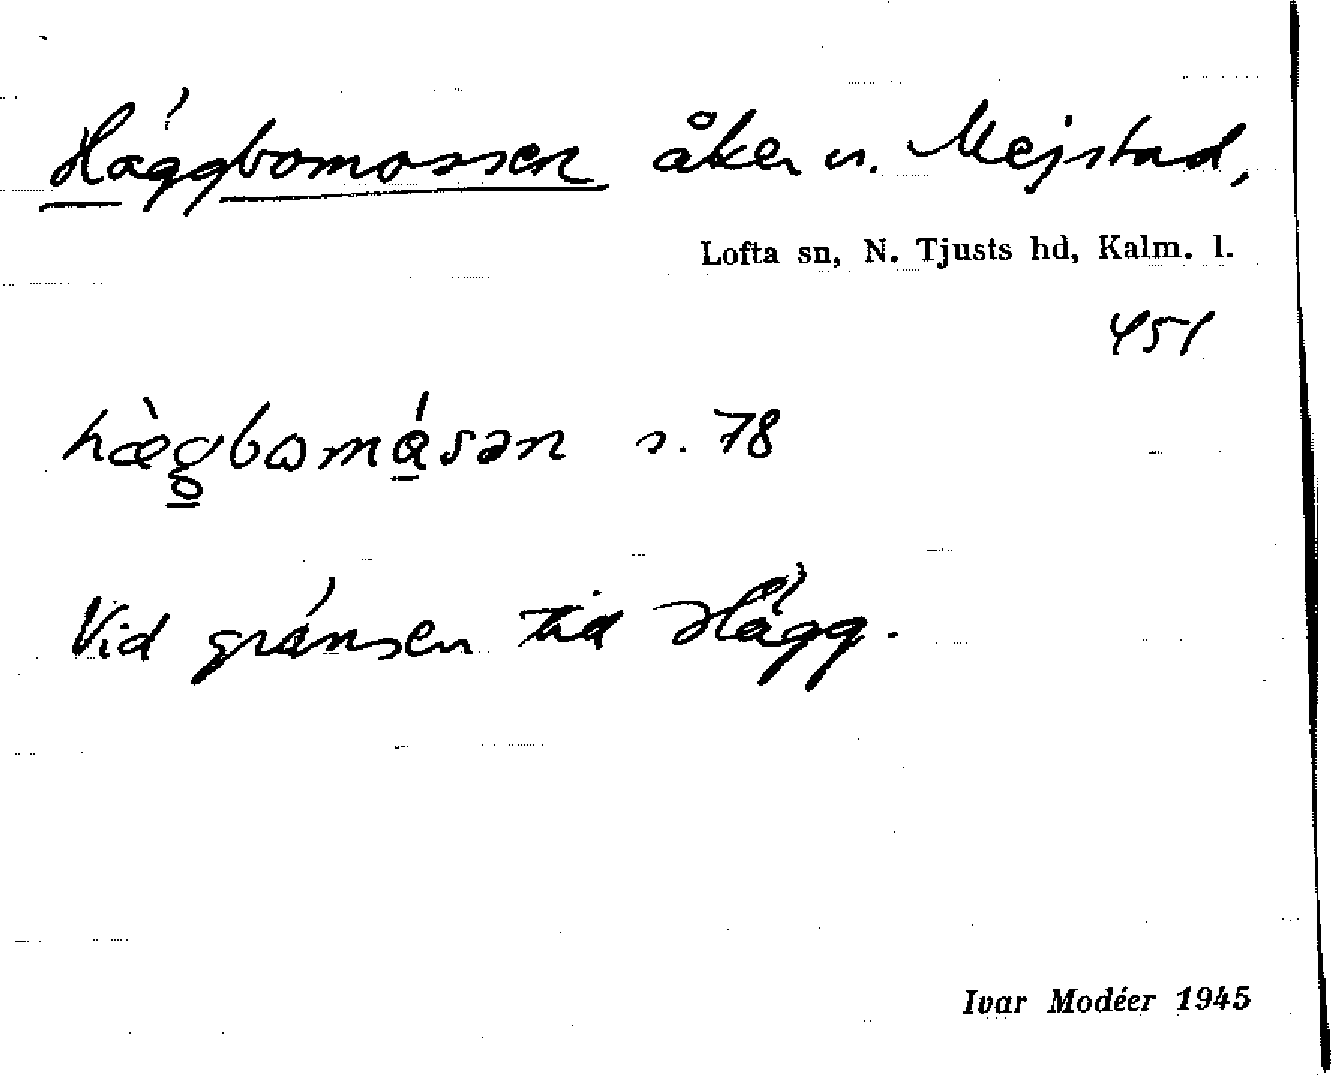 Häggbomossen åker n. Mejstad,
Lofta sn, N. Tjusts hd, Kalm. l.
451
hæ̀g̥bɷmásən s. 78
Vid gränsen till Hägg.
Ivar Modéer 1945